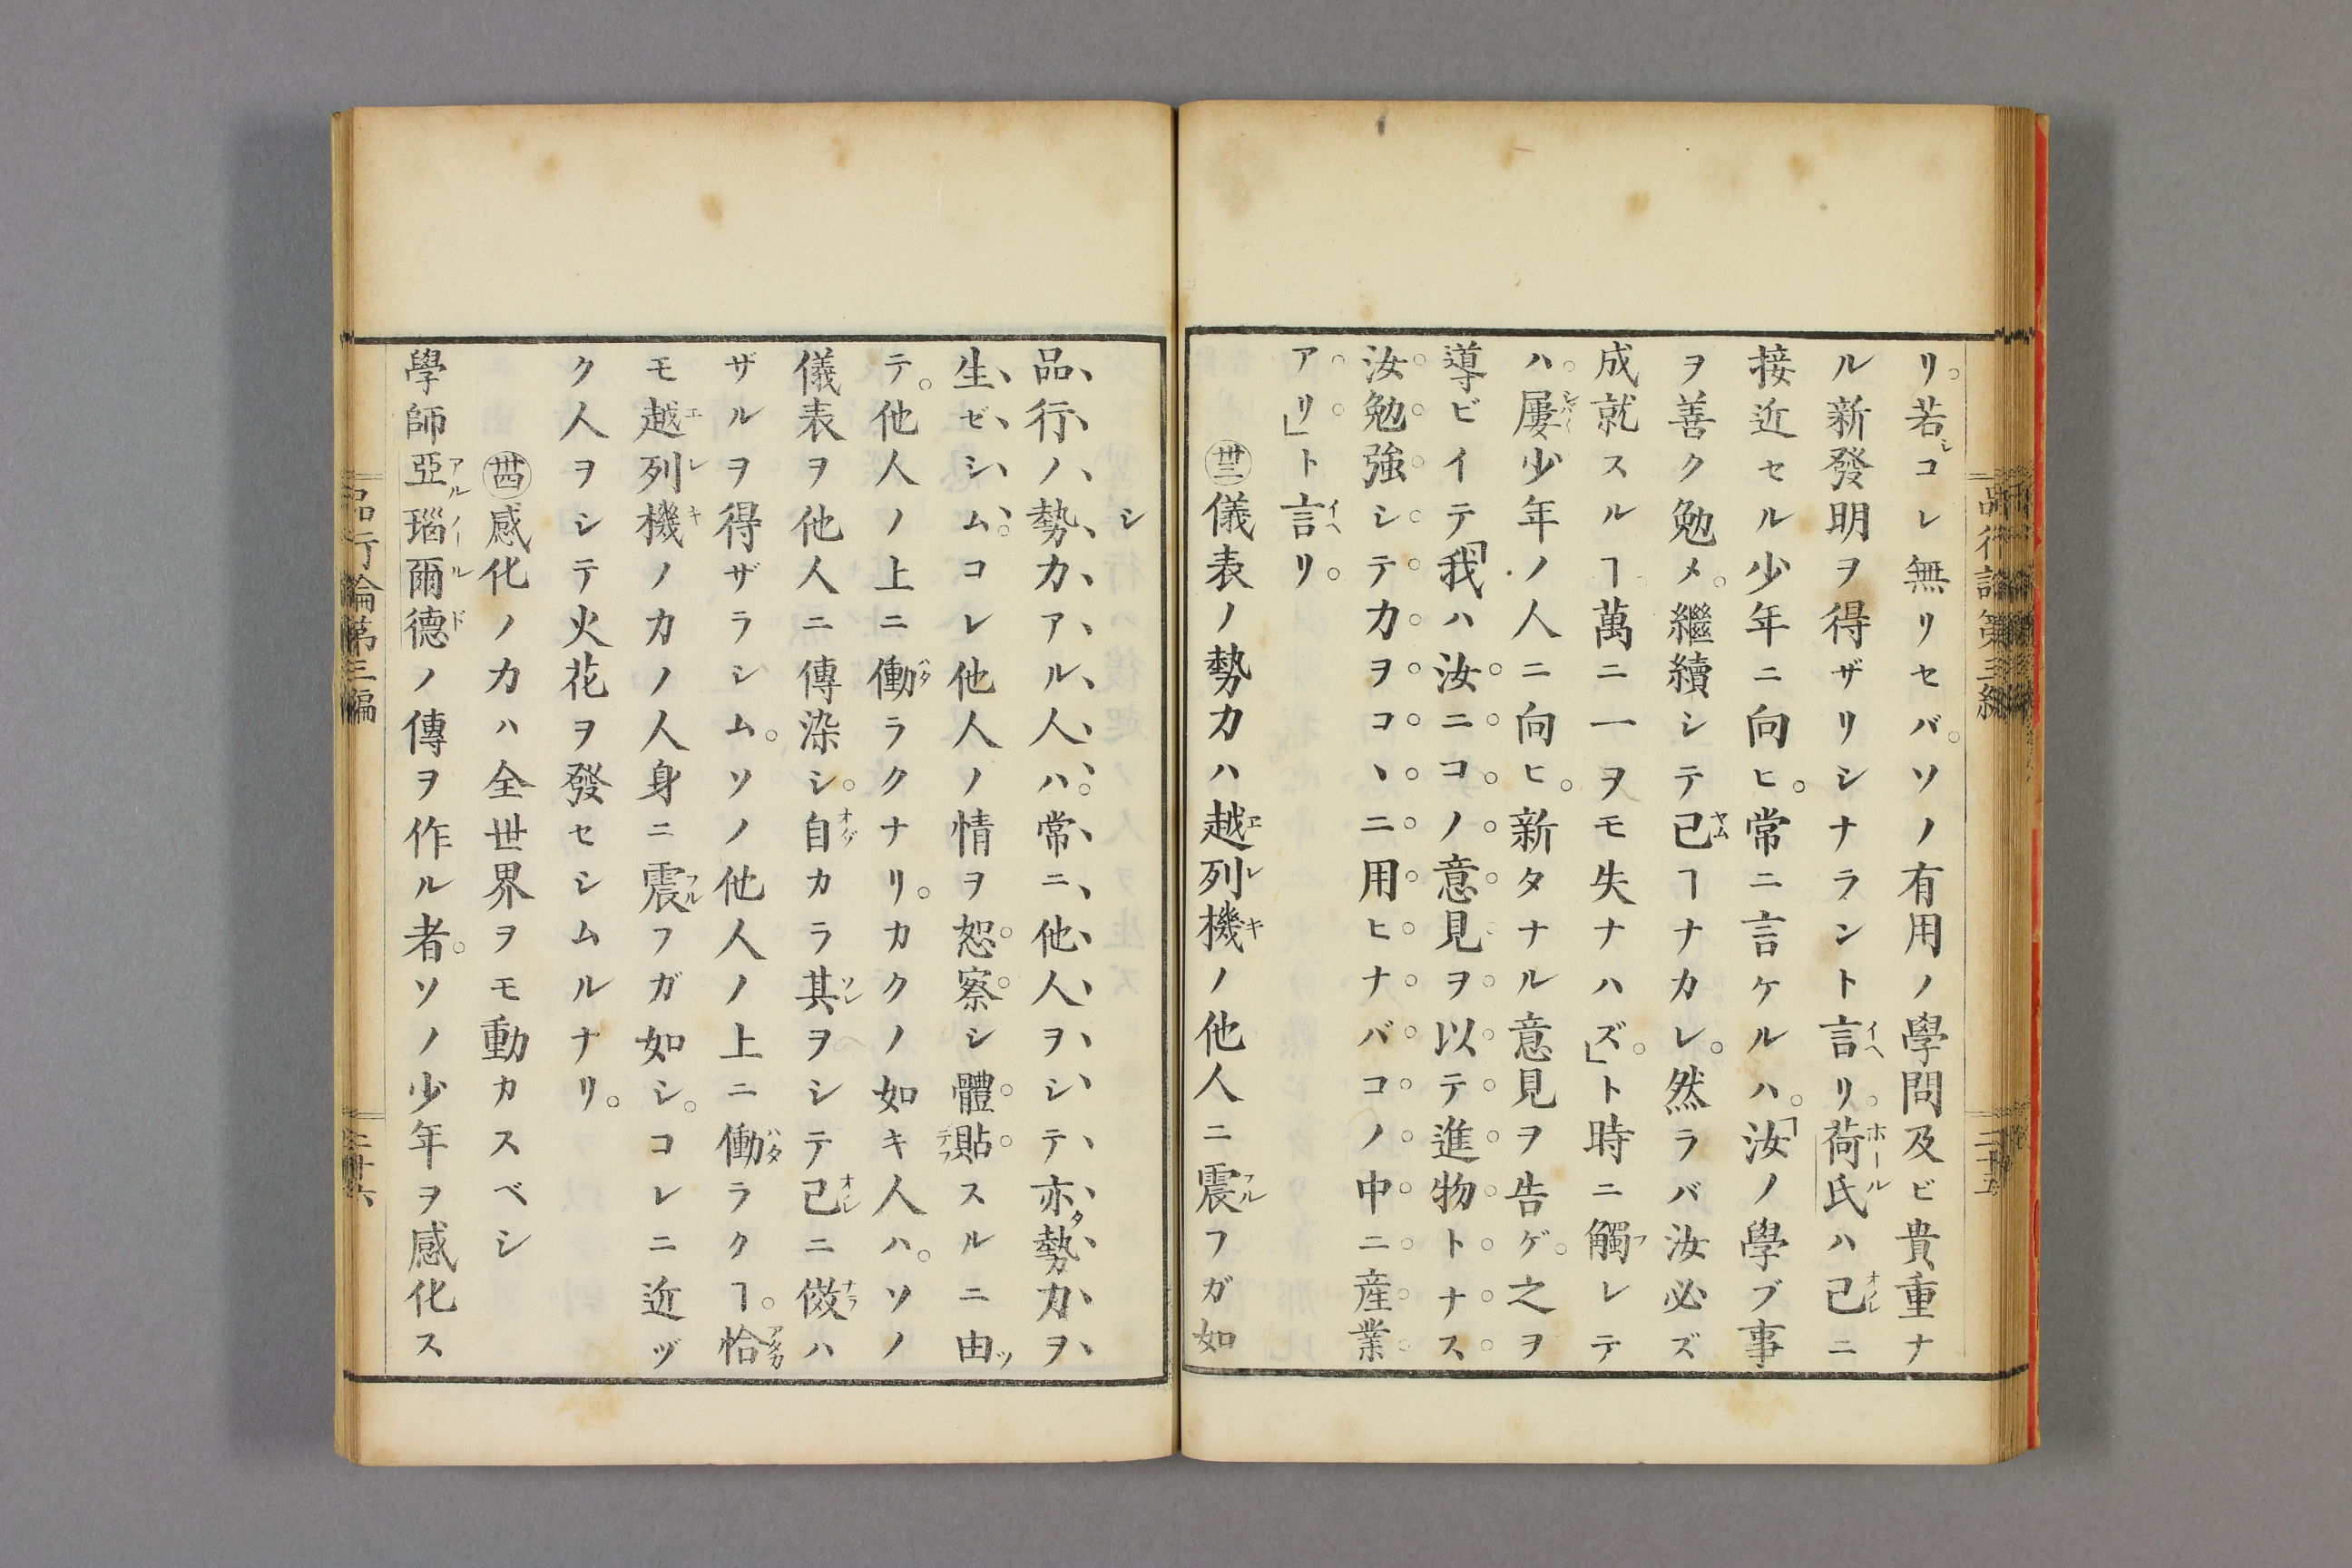 品行論第三編
二十五
リ。若シコレ無リセバ。ソノ有用ノ學問及ビ貴重ナ
ル新發明ヲ得ザリシナラント言リ。荷氏ハ己ニ
接近セル少年ニ向ヒ。常ニ言ケルハ。「汝ノ學ブ事
ヲ善ク勉メ。繼續シテ已ヿナカレ。然ラバ汝必ズ
成就スルヿ。萬ニ一ヲモ失ナハズ。」ト時ニ觸レテ
ハ。屢〻少年ノ人ニ向ヒ。新タナル意見ヲ告ゲ。之ヲ
導ビイテ「我ハ汝ニコノ意見ヲ以テ進物トナス
汝勉強シテ力ヲコヽニ用ヒナバコノ中ニ産業
アリ」ト言リ。
㊳儀表ノ勢力ハ越列機ノ他人ニ震フガ如
シ
品行ノ勢力アル人ハ。常ニ他人ヲシテ亦勢力ヲ
生ゼシム。コレ他人ノ情ヲ恕察シ體貼スルニ由ッ
テ。他人ノ上ニ働ラクナリ。カクノ如キ人ハ。ソノ
儀表ヲ他人ニ傳染シ。自カラ其ヲシテ己ニ傚ハ
ザルヲ得ザラシム。ソノ他人ノ上ニ働ラクヿ。恰
モ越列機ノ力ノ人身ニ震フガ如シ。コレニ近ヅ
ク人ヲシテ火花ヲ發セシムルナリ。
感化ノ力ハ全世界ヲモ動カスベシ
學師亞瑙爾德ノ傳ヲ作ル者。ソノ少年ヲ感化ス
品行論第三編
二十六